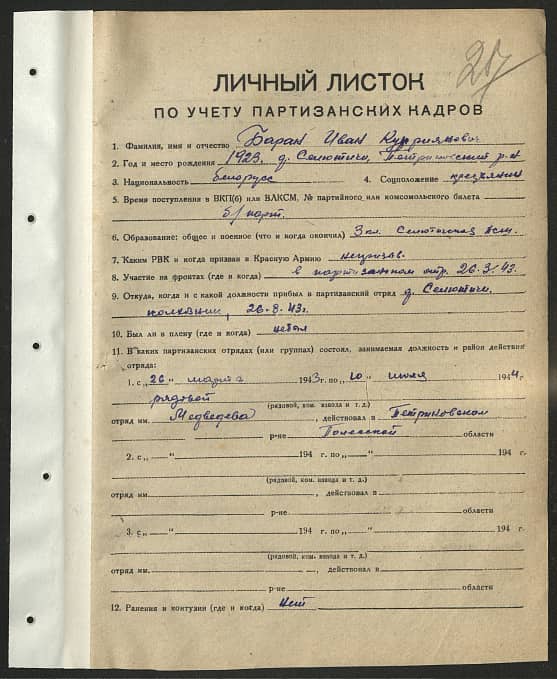 207
ЛИЧНЫЙ ЛИСТОК
ПО УЧЕТУ ПАРТИЗАНСКИХ КАДРОВ
1. Фамилия, имя и отчество Баран Иван Куприянович
2. Год и место рождения 1923, д. Селютичи, Петриковский р-н
3. Национальность белорусс 4. Соцположение крестьянин
5. Время поступления в ВКП(б) или ВЛКСМ, № партийного или комсомольского билета
б/парт.
6. Образование: общее и военное (что и когда окончил) 3 кл. Селютичская
7. Каким РВК и когда призван в Красную Армию непризыв.
8. Участие на фронтах (где и когда) в партизанском отр. 26.3.43.
9. Откуда, когда и с какой должности прибыл в партизанский отряд д. Селютичи,
колхозник, 26.3.43г.
10. Был ли в плену (где и когда) небыл
11. В каких партизанских отрядах (или группах) состоял, занимаемая должность и район действия
отряда:
1. с „26“ марта 1943 г. по „10“ июля 1944 г.
рядовой
(рядовой, ком. взвода и т. д.)
отряд им. Медведева, действовал в Петриковском
р-не Полесской области
2. с „ “ 194 г. по „ “ 194 г.
(рядовой, ком. взвода и т. д.)
отряд им. , действовал в
р-не области
3. с „ “ 194 г. по „ “ 194 г.
(рядовой, ком. взвода и т. д.)
отряд им. , действовал в
р-не области
12. Ранения и контузии (где и когда) нет